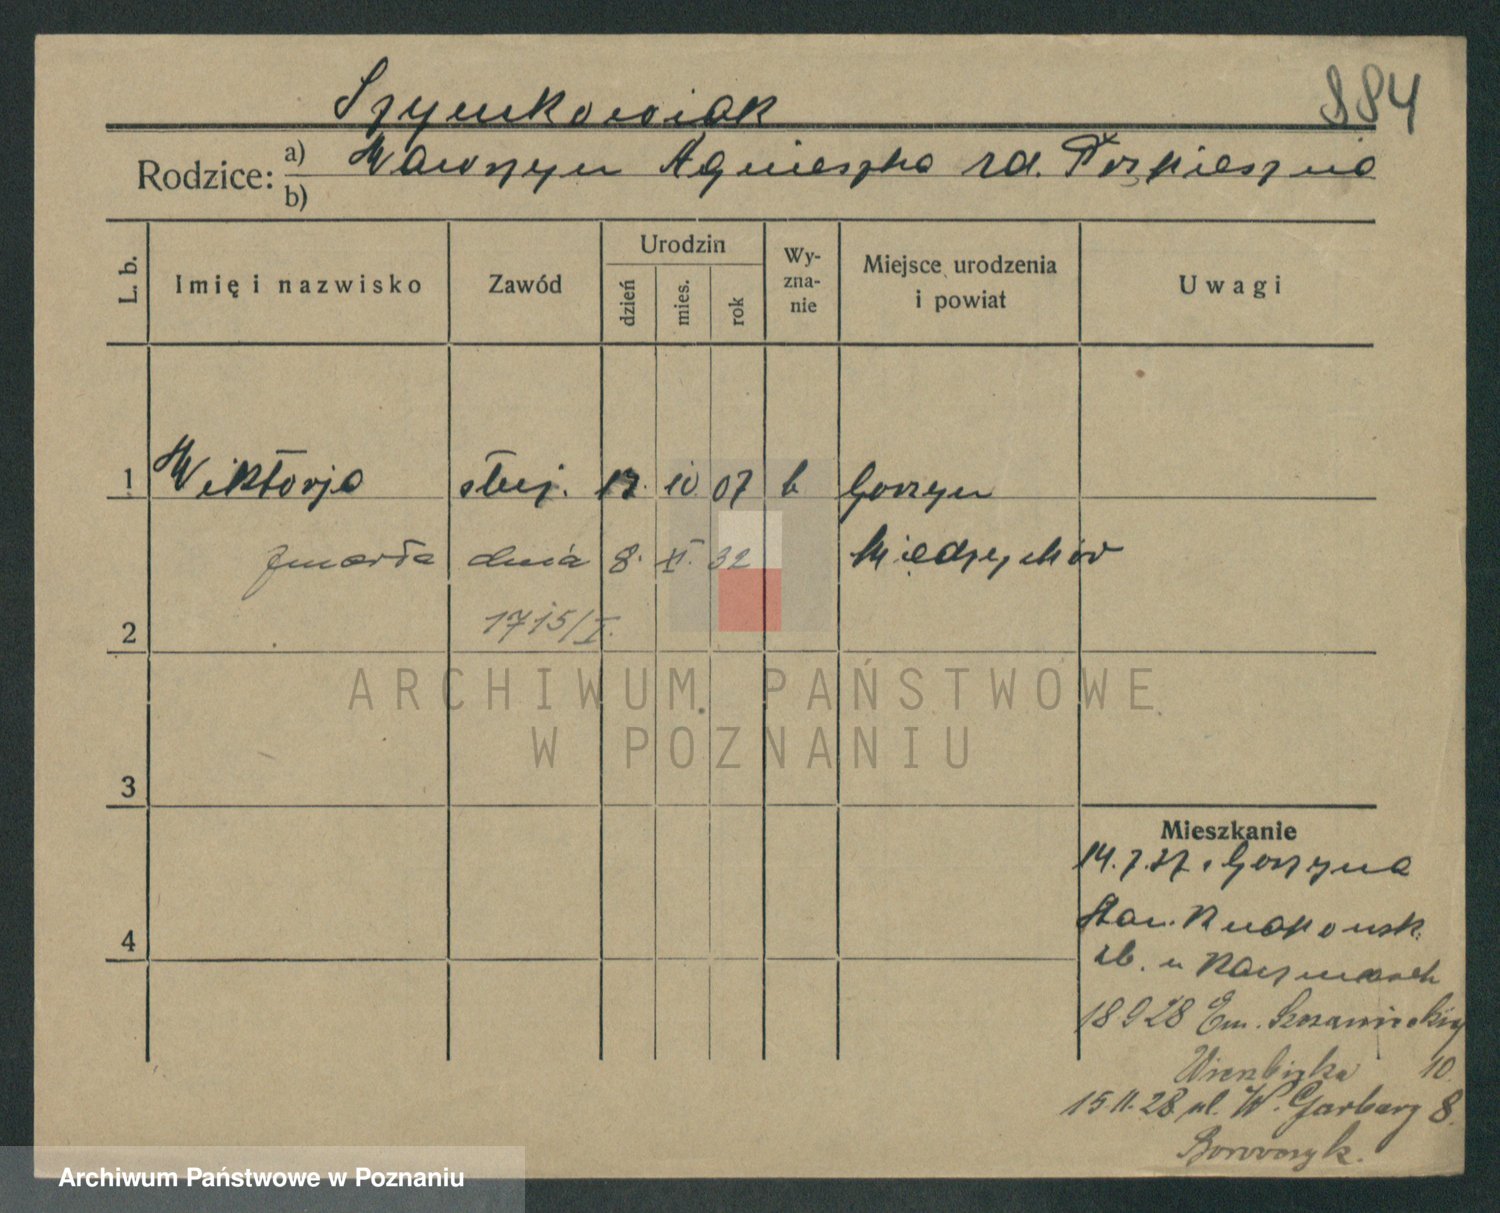 884
Szymkowiak
Rodzice: a) Wawrzyn Agnieszka rd. Pospieszna
b)
L. b. Imię i nazwisko Zawód Urodzin dzień mies. rok Wy-zna-nie Miejsce urodzenia i powiat Uwagi
1 Wiktorja służ. 17. 10. 07 k Gorzyn
zmarła dnia 8. XI. 32 Międzychód
2 1715/I.
ARCHIWUM PAŃSTWOWE
W POZNANIU
3
Mieszkanie
14.7.27. Gorzyna
4 Stan.
u Kaczmarek
18 9 28 Em. Szczanieckiej
10.
15.11.28 ul. W. Garbary 8.
Archiwum Państwowe w Poznaniu